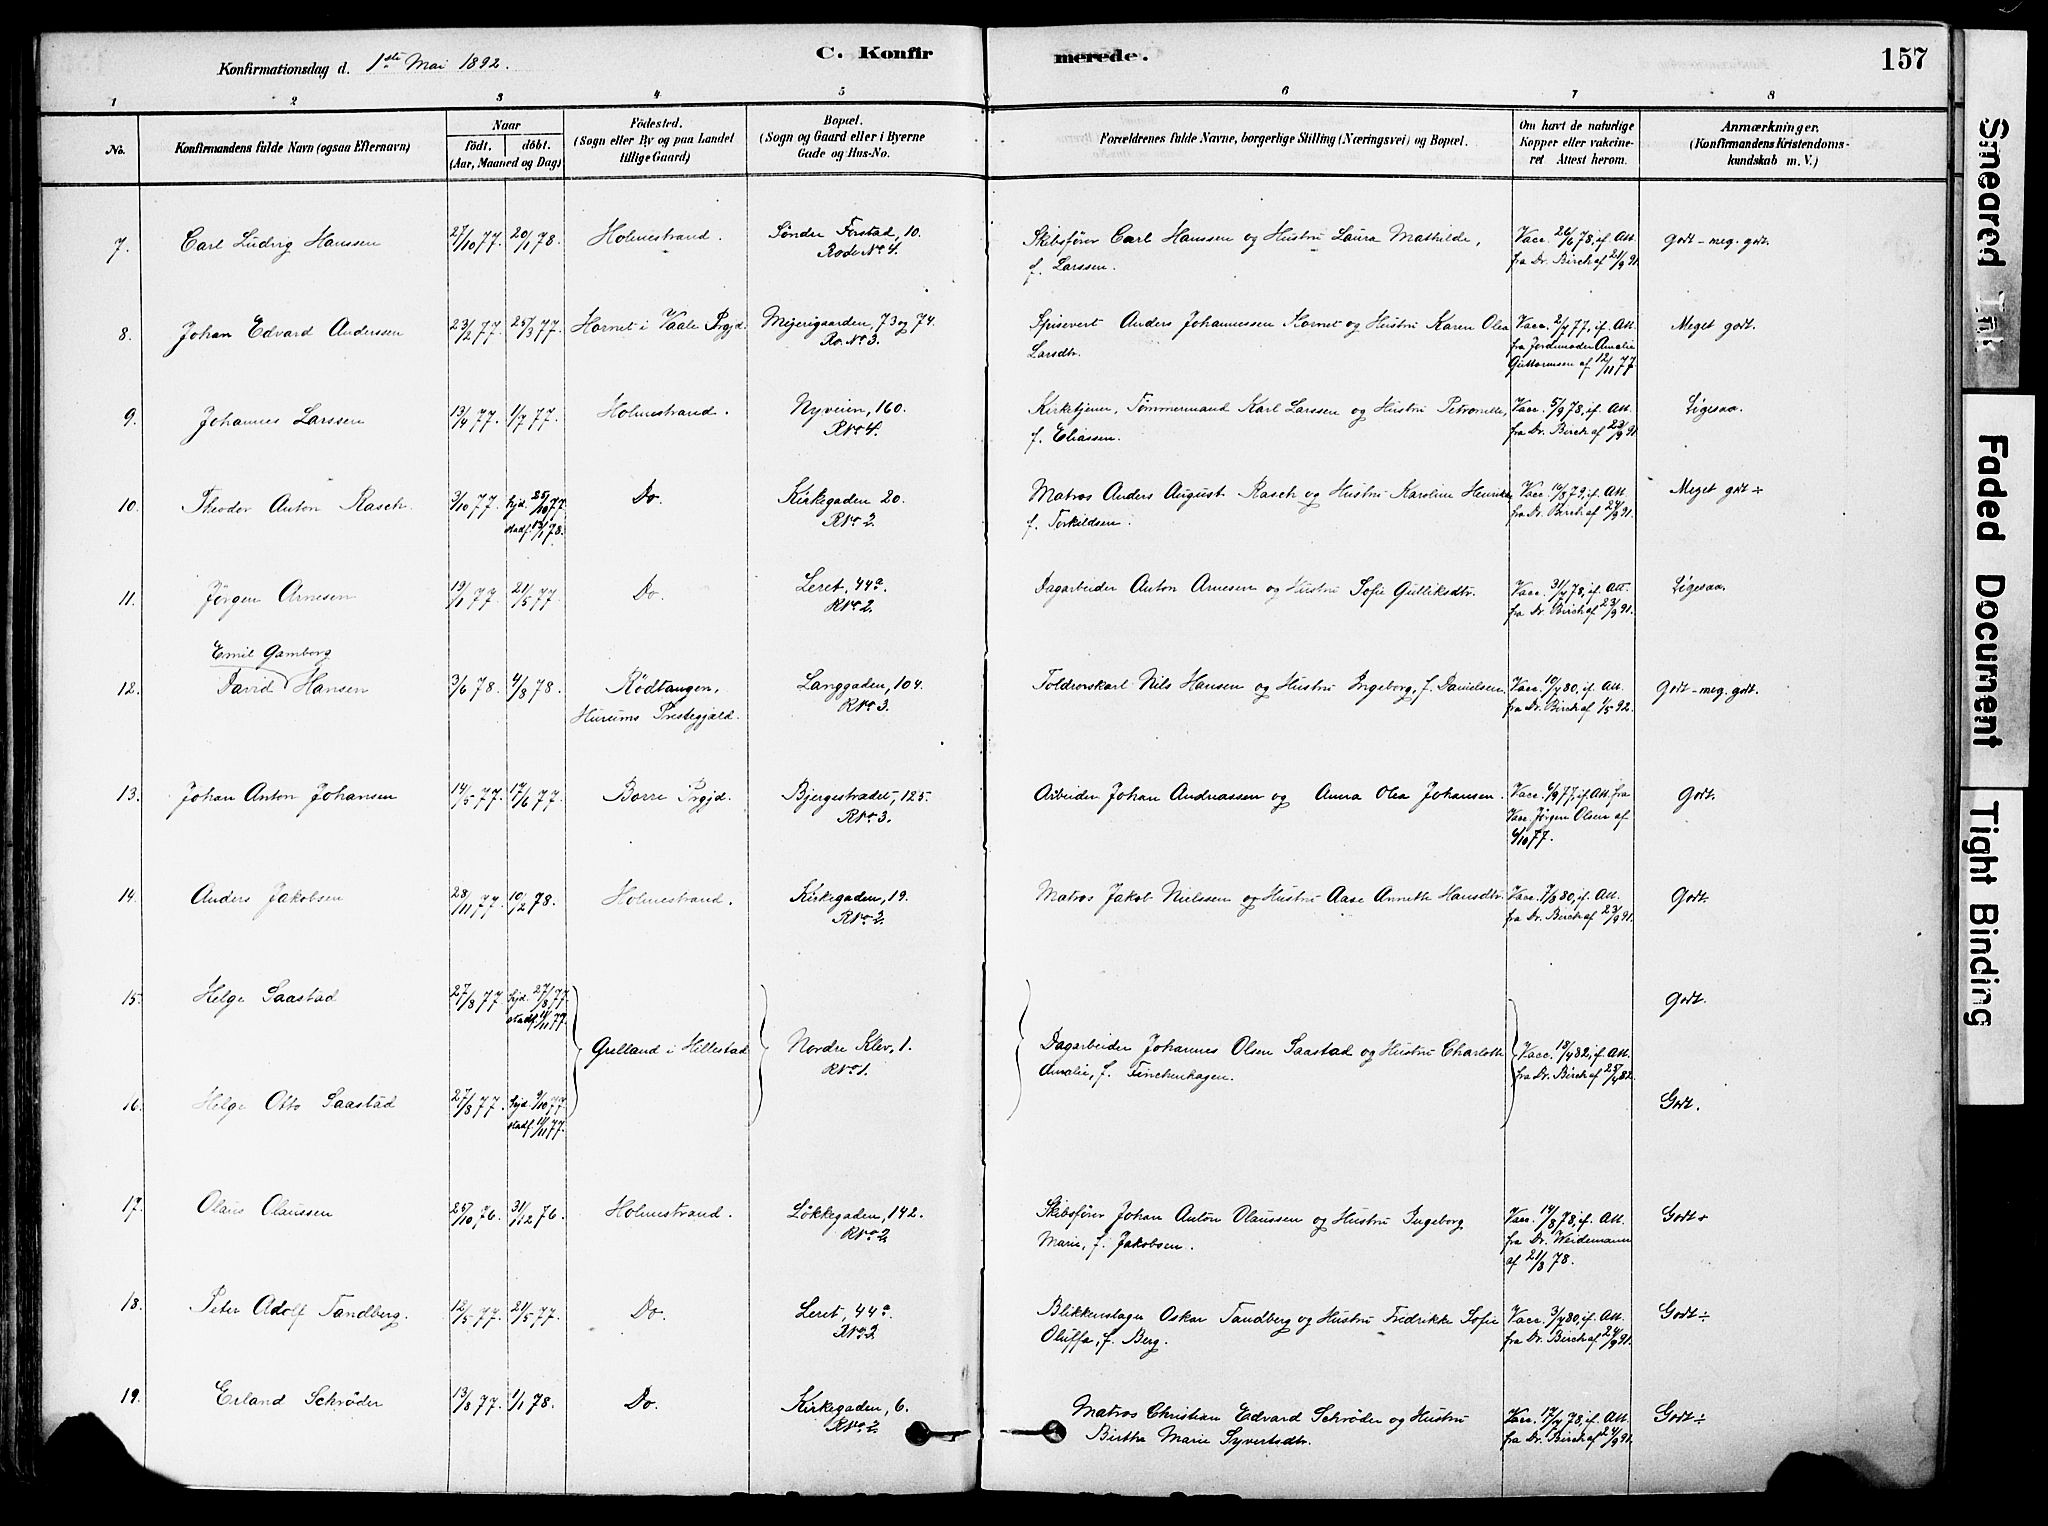 Konfirmationsdag d. 1ste Mai 1892.
C. Konfir
merede.
157
1
2
3
4
5
6
7
8
No.
Konfirmandens fulde Navn (ogsaa Efternavn)
Naar
født. døbt.
(Aar, Maaned og Dag)
Födested.
(Sogn eller By og paa Landet
tillige Gaard)
Bopæl.
(Sogn og Gaard eller i Byerne
Gade og Hus-No.
Forældrenes fulde Navne, borgerlige Stilling (Næringsvei) og Bopæl.
Om havt de naturlige
Kopper eller vakcine-
ret Attest herom.
Anmærkninger.
(Konfirmandens Kristendoms-
kundskab m. V.)
7. Carl Ludvig Hanssen 27/10 77. 20/1 78. Holmestrand. Søndre Forstad, 10.
Rode No 4.
Skibsfører Carl Hanssen og Hustru Laura Mathilde,
f. Larssen.
Vacc. 26/6 78, if. Att.
fra Dr. Birch af 21/9 91.
Godt - meg. godt.
8. Johan Edvard Anderssen 23/2 77. 25/3 77. Hornet i Vaale Prgjd. Meijerigaarden, 73 og 74.
Ro. No 3.
Spisevert Anders Johannessen Hornet og Hustru Karen Olea
Larsdtr.
Vacc. 2/7 77, if. Att.
fra Jordemoder Amalie
Guttormsen af 12/11 77
Meget godt.
9. Johannes Larssen 13/4 77. 1/7 77. Holmestrand. Nyveien, 160.
R No 4.
Kirketjener, Tømmermand Karl Larssen og Hustru Petronelle,
f. Eliassen.
Vacc. 5/9 78, if. Att.
fra Dr. Birch af 23/9 91.
Ligesaa.
10. Theodor Anton Rasch. 3/10 77. hjd. 25/10 77.
stadf. 13/1 78.
Do. Kirkegaden 20.
R No 2.
Matros Anders August Rasch og Hustru Karoline Henrikke
f. Torkildsen.
Vacc. 10/8 79, if. Att.
fra Dr. Birch af 24/9 91.
Meget godt ÷
11. Jørgen Arnesen 19/1 77. 21/5 77. Do. Leret, 44a.
R No 2.
Dagarbeider Anton Arnesen og Hustru Sofie Gulliksdtr.
Vacc. 31/7 78, if. Att.
fra Dr. Birch af 23/9 91.
Ligesaa.
Emil Gamborg
12. David Hansen 3/6 78. 4/8 78. Rødtangen,
Hurums Prestegjæld.
Langgaden, 104.
R No 3.
Toldrorskarl Nils Hansen og Hustru Ingeborg, f. Danielsen.
Vacc. 10/7 80, if. Att.
fra Dr. Birch af 1/5 92.
Godt - meg. godt.
13. Johan Anton Johansen 14/5 77. 17/6 77. Borre Prgjd. Bjergestrædet, 125.
R No 3.
Arbeider Johan Andreassen og Anna Olea Johansen.
Vacc. 6/9 77, if. Att. fra
Vacc. Jørgen Olsen af
6/10 77.
Godt.
14. Anders Jakobsen 28/11 77. 10/2 78. Holmestrand. Kirkegaden, 19.
R No 2.
Matros Jakob Nielssen og Hustru Aase Annette Hansdtr.
Vacc. 7/8 80, if. Att.
fra Dr. Birch af 23/9 91.
Godt.
15. Helge Saastad 27/8 77. hjd. 27/8 77.
stadf. 11/11 77.
Godt.
Grelland i Hillestad Nordre Klev, 1.
R No 1.
Dagarbeider Johannes Olsen Saastad og Hustru Charlotte
Amalie, f. Finckenhagen.
Vacc. 18/7 82, if. Att.
fra Dr. Birch af 25/7 82.
16. Helge Otto Saastad 27/8 77. hjd. 9/10 77.
stadf. 11/11 77.
Godt.
17. Olaus Olaussen 25/10 76. 31/12 76. Holmestrand. Løkkegaden, 142.
R No 2.
Skibsfører Johan Anton Olaussen og Hustru Ingeborg
Marie, f. Jakobsen.
Vacc. 14/8 78, if. Att.
fra Dr. Weidemann
af 21/8 78.
Godt +
18. Peter Adolf Tandberg. 12/5 77. 21/5 77. Do. Leret, 44a.
R No 2.
Blikkenslager Oskar Tandberg og Hustru Fredrikke Sofie
Oluffa, f. Berg.
Vacc. 3/7 80, if. Att.
fra Dr. Birch af 24/9 91.
Godt ÷
19. Erland Schrøder 13/8 77. 1/1 78. Do. Kirkegaden, 6.
R No 2.
Matros Christian Edvard Schrøder og Hustru
Birthe Marie Syvertsdtr.
Vacc. 17/7 78, if. Att.
fra Dr. Birch af 24/9 91.
Godt ÷
Smeared Ink
Faded Document
Tight Binding